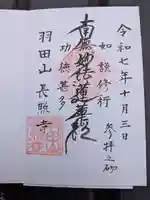 令和七年十月三日
参拝之砌
如説修行
南無妙法蓮華経
功徳甚多
羽田山 長照寺